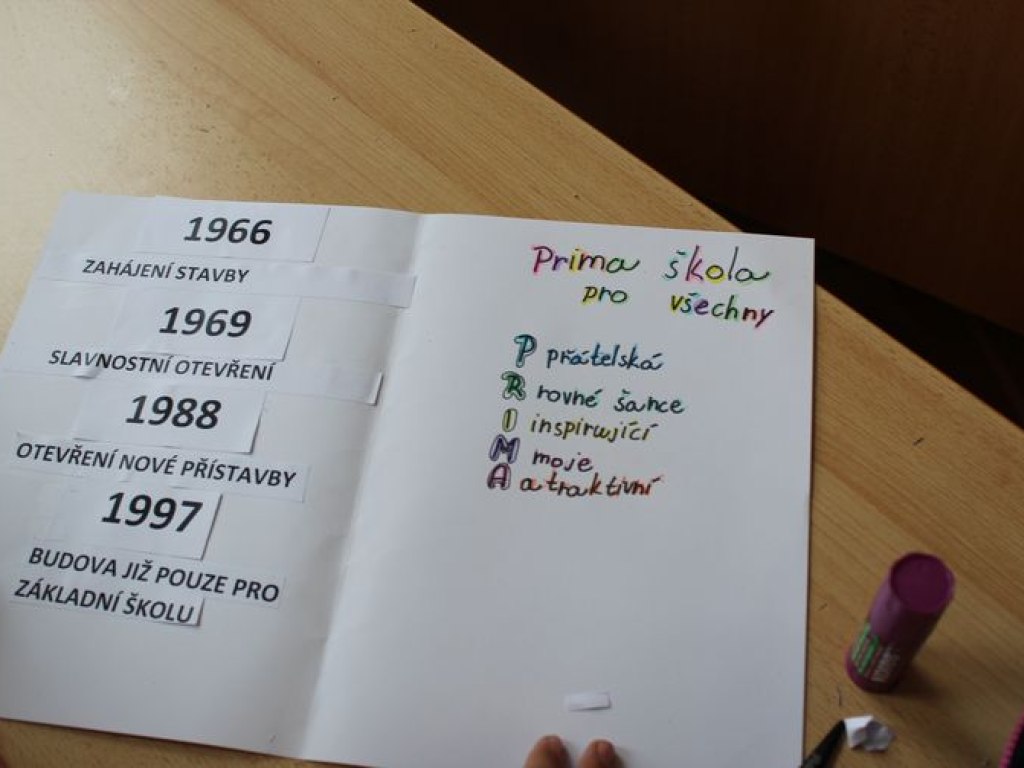 1966
ZAHÁJENÍ STAVBY
1969
SLAVNOSTNÍ OTEVŘENÍ
1988
OTEVŘENÍ NOVÉ PŘÍSTAVBY
1997
BUDOVA JIŽ POUZE PRO
ZÁKLADNÍ ŠKOLU
Prima škola
pro všechny
P přátelská
R rovné šance
I inspirující
M moje
A atraktivní